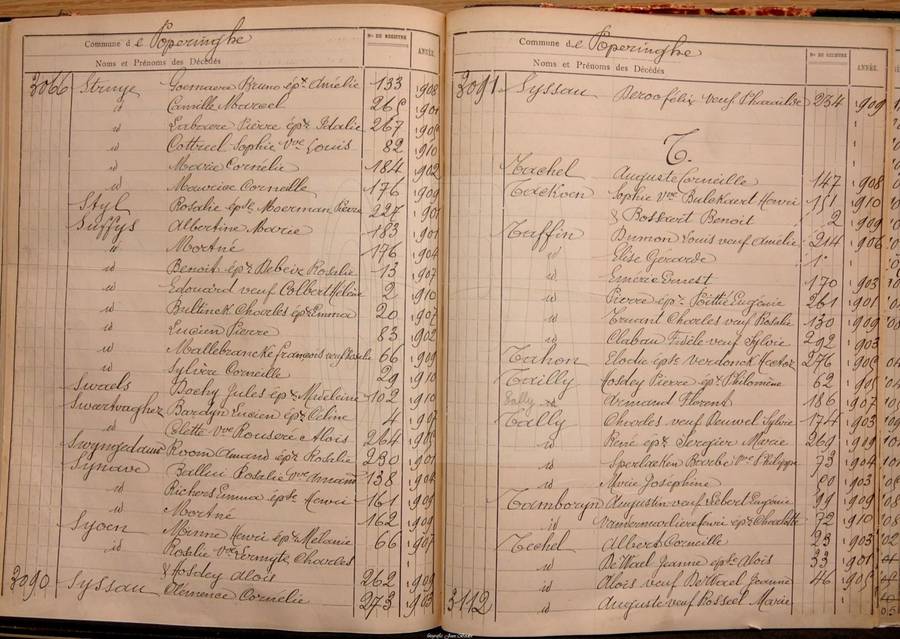 Commune de Poperinghe
Noms et Prénoms des Décédés
Nos DE REGISTRE
ANNÉE.
3066 Struye Goemaere Bruno épx Amélie 133 908
id Camille Marcel 265 901
id Labaere Pierre épx Idalie 267 905
id Cottreel Sophie Vve Louis 82 910
id Marie Cornélie 184 902
id Maurice Corneille 176 909
Styl Rosalie épse Moerman Pierre 227 901
Suffys Albertine Marie 183 901
" Mortné 176 904
id Benoit épx Rosalie 13 907
id Edouard veuf Colbert Hélène 2 910
id Bultinck Charles épx Emma 20 907
id Lucien Pierre 83 902
id Mallebrancke François veuf Rosalie 66 909
id Sylvère Corneille 29 910
Swaels Boeky Jules épx Mideleine 102 910
Swartvaghez Bardyn Lucien épx Céline 4 907
id Colette Vve Rouseré Aloïs 264 905
Swyngedauw Kroom Amand épx Rosalie 230 901
Synave Balleu Rosalie Vve Amand 138 904
id Richers Emma épse Henri 161 909
id Mortné 162 909
Syoen Minne Henri épx Mélanie 66 907
id Rosalie Vve Vermyte Charles
& Hosdey Aloïs 262 909
3090 Syssau Clémence Cornélie 273 903
Commune de Poperinghe
Noms et Prénoms des Décédés
Nos DE REGISTRE
ANNÉE.
3091 Syssau Deroo Félix veuf 234 909
T.
Tachel Auguste Corneille 147 908
Tackoen Sophie Vve Bulckaert Henri 151 910
& Boskaert Benoit 2 909
Taffin Dumon Louis veuf Amélie 214 906
id Elise Gérarde 1
id Emérie Ernest 170 903
id Pierre épx Pittié Eugénie 261 901
id Truant Charles veuf Rosalie 130 909
id Clabau Fidèle veuf Sylvie 292 903
Tahon Elodie épse Verdonck Hector 276 905
Tailly Hosdey Pierre épx Philomène 62 905
Tally id Armand Florent 186 907
Tally Charles veuf Deuwel Sylvie 174 903
id René épx Sergier Marie 269 909
id Sperlaeken Barbe Vve Philippe 73 904
id Marie Joséphine 80 903
Tamboryn Augustin veuf Lebert Eugénie 99 909
id Vandenwoliere Louis épx Charlotte 72 910
Techel Albert Corneille 23 903
id De Wael Jeanne épse Aloïs 33 901
id Aloïs veuf DeWael Jeanne 46 905
3112 id Auguste veuf Rosseel Marie